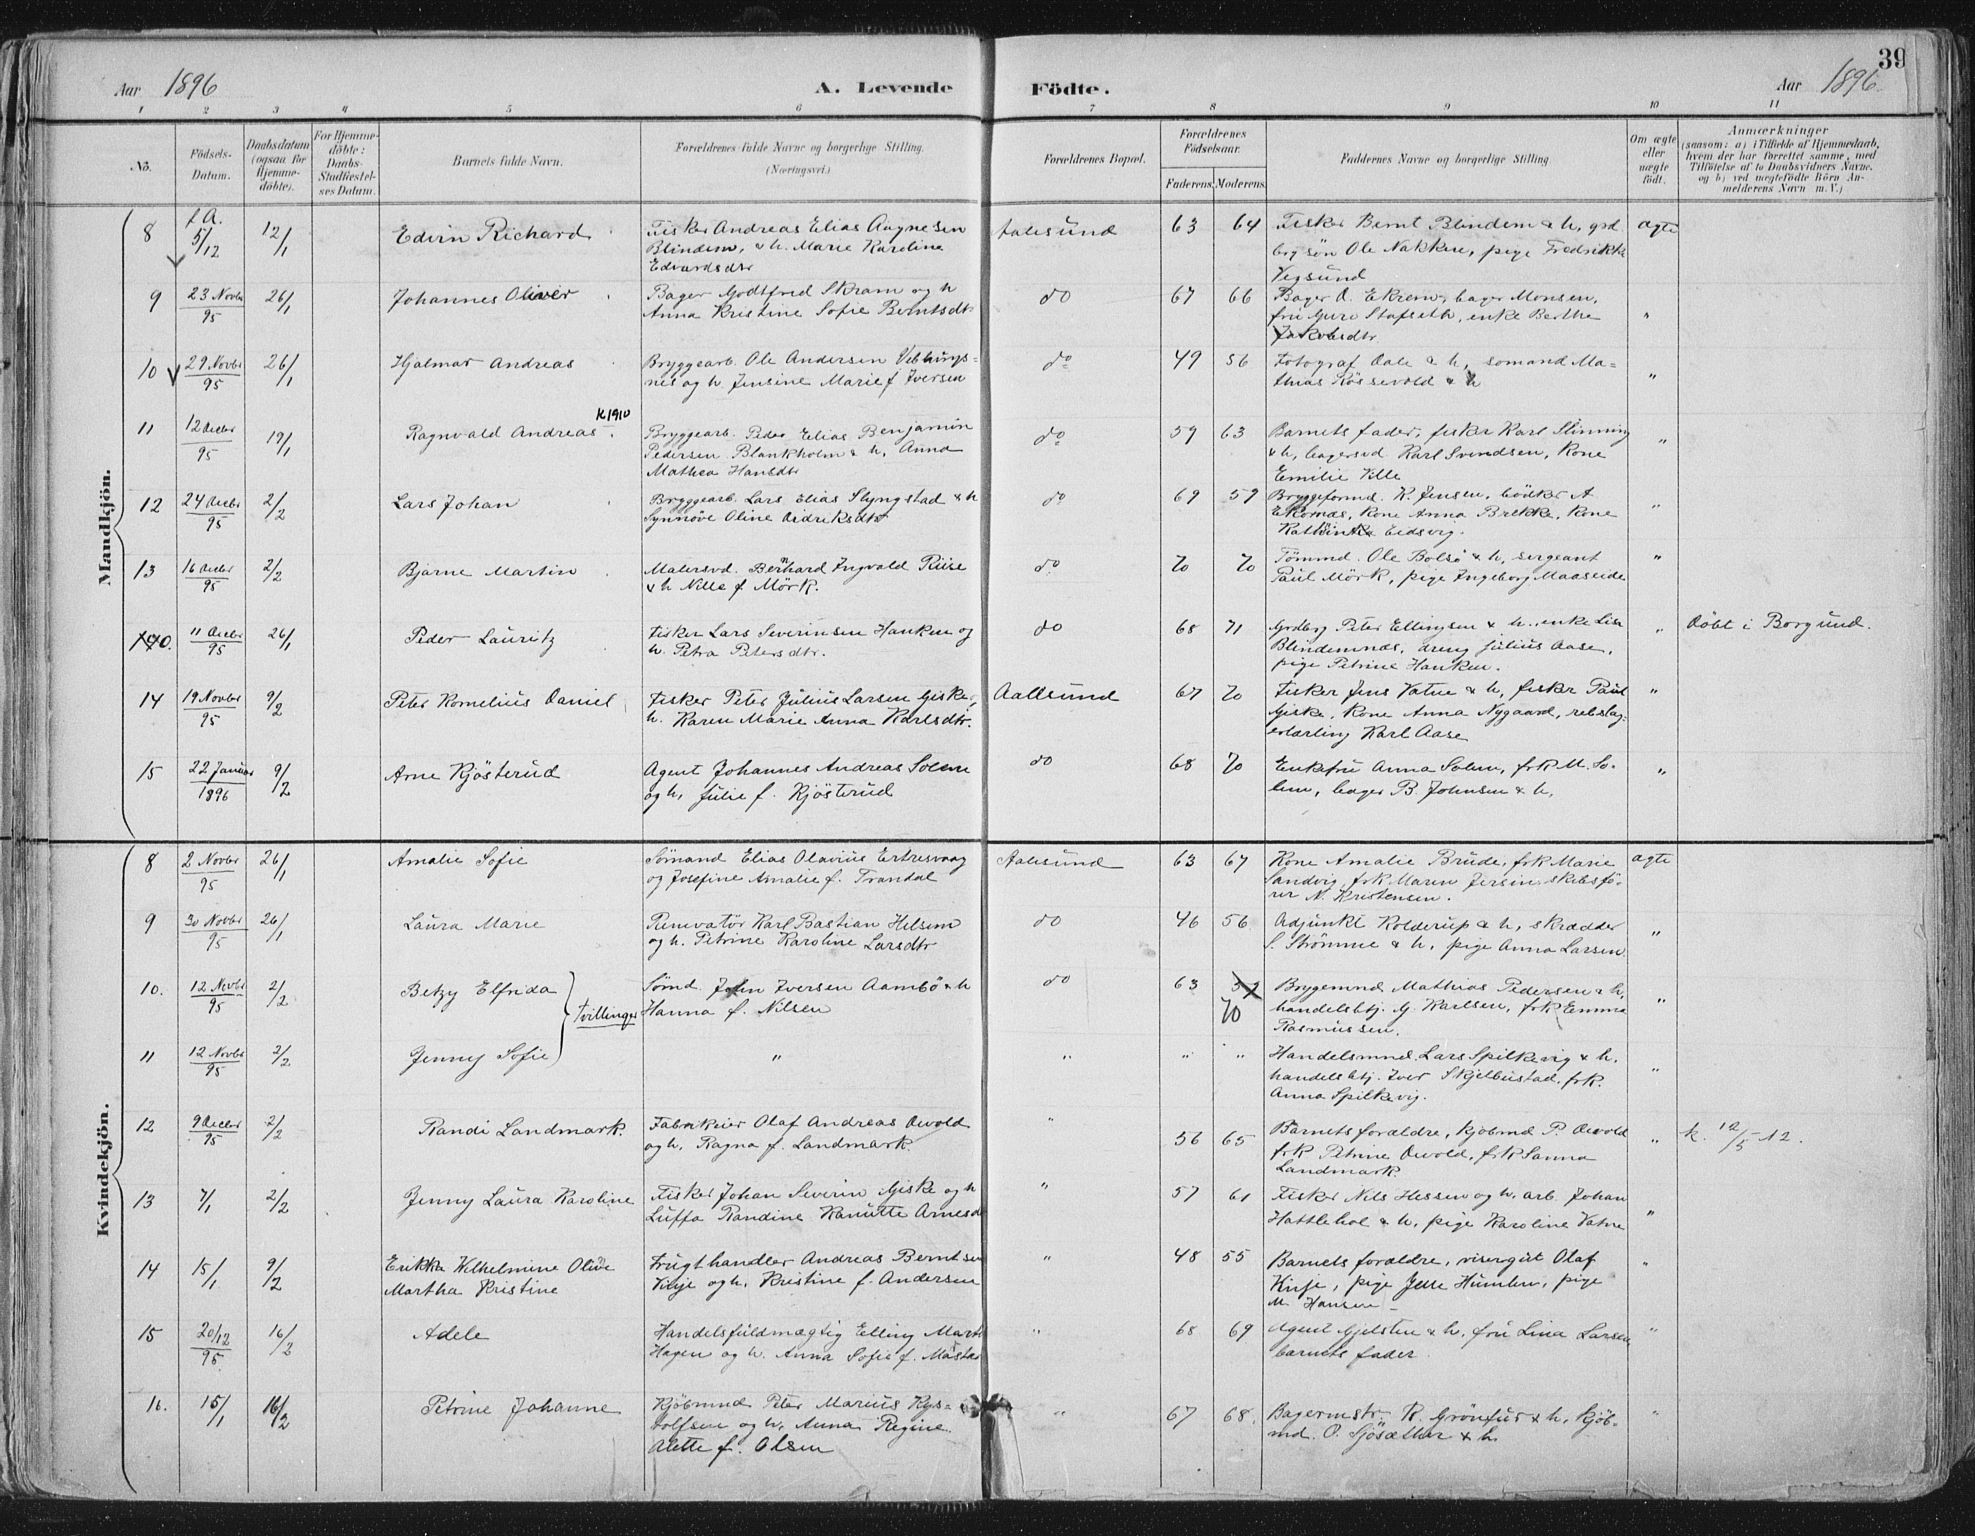 39
Aar 1896
A. Levende Födte.
Aar 1896.
1 2 3 4 5 6 7 8 9 10 11
No.
Födsels-
Datum.
Daabsdatum
(ogsaa for
Hjemme-
döbte).
For Hjemme-
döbte:
Daabs-
Stadfæstel-
ses Datum.
Barnets fulde Navn.
Forældrenes fulde Navne og borgerlige Stilling.
(Næringsvei.)
Forældrenes Bopæl.
Forældrenes
Födselsaar.
Faderens. Moderens.
Faddernes Navne og borgerlige Stilling
Om ægte
eller
uægte
födt.
Anmærkninger
(saasom: a) i Tilfælde af Hjemmedaab,
hvem der har forrettet samme, med
Tilföielse af to Daabsvidners Navne.
og b) ved uægtefödte Börn An-
melderens Navn m. V.)
Mandkjön.
f A.
8 5/12 12/1 Edvin Richard Fisker Andreas Elias Aagnesen Aalesund 63 64 Fisker Bernt Blindem & h, grd ægte
Blindem, & h. Marie Karoline brgsøn Ole Nakken, pige Fredrikke
Edvardsdtr Vegsund
9 23 Novbr/95 26/1 Johannes Oliver Bager Godtfred Skram og h do 67 66 Bager O. Ekrem, bager Monsen, "
Anna Kristine Sofie Berntsdtr fru Guro Stafseth, enke Berthe
Jakobsdtr
10 29 Novbr/95 26/1 Hjalmar Andreas Bryggearb. Ole Andersen Veblungs- do 49 56 Fotograf Aale & h, sømand Ma- "
nes og h. Jensine Marie f Iversen thias Røssevold & h
k 1910
11 12 Decbr/95 19/1 Ragnvald Andreas Bryggearb. Peder Elias Benjamin do 59 63 Barnets fader, fisker Karl Slinning "
Pedersen Blankholm & h. Anna & h, bagersvd Karl Svendsen, Kone
Mathea Hansdtr Emilie Ville
12 24 Decbr/95 2/2 Lars Johan Bryggearb. Lars Elias Slyngstad & h do 69 59 Bryggeformd. K. Jensen, bödker A "
Synnöve Oline Didriksdtr Ekornæs, Kone Anna Brekke, Kone
Kathinka Eidsvig.
13 16 Decbr/95 2/2 Bjarne Martin Malersvd. Bernhard Ingvald Riise do 70 70 Tömmd. Ole Bolsö & h, sergeant "
& h Nille f. Mörk. Paul Mörk, pige Ingeborg Maaseide
140. 11 Decbr/95 26/1 Peder Lauritz Fisker Lars Severinsen Hanken og do 68 71 Grdbrg Peter Ellingsen & h. enke Lise " döbt i Borgund.
h. Petra Petersdtr. Blindemnæs, dreng Julius Aase,
pige Petrine Hanken.
14 19 Novbr/95 9/2 Peter Kornelius Daniel Fisker Peter Julius Larsen Giske, Aalesund 67 70 Fisker Jens Vatne & h, fisker Paul "
h. Karen Marie Anna Karlsdtr. Giske, Kone Anna Nygaard, rebslag-
erlærling Karl Aase
15 22 Januar/1896 9/2 Arne Kjösterud Agent Johannes Andreas Solem do 68 70 Enkefru Anna Solem, frk M. So- "
og h. Julie f. Kjösterud lem, bager B. Johnsen & h.
Kvindekjön.
8 2 Novbr/95 26/1 Amalie Sofie Sömand Elias Olavius Ertresvaag Aalesund 63 67 Kone Amalie Brude, frk Marie ægte
og Josefine Amalie f. Trandal Sandvig, frk Maren Jersin skibsfö-
rer N. Kristensen.
9 30 Novbr/95 26/1 Laura Marie Renovatör Karl Bastian Hilsem do 46 56 Adjunkt Kolderup & h, skrædder "
og h. Petrine Karoline Larsdtr S. Strömme & h, pige Anna Larsen
10. 12 Novbr/95 2/2 Betzy Elfrida Sömd. John Iversen Aambö & h do 63 70 Bryggemnd. Mathias Pedersen & h, "
tvillinger
Hanna f. Nilsen handelsbtj. G. Karlsen, frk Emma
Rasmussen.
11 12 Novbr/95 2/2 Jenny Sofie " " " " Handelsmnd. Lars Spilkevig & h. "
handelsbtj. Iver Skjelbustad, frk.
Anna Spilkevig.
12 9 Decbr/95 2/2 Randi Landmark. Fabrikeier Olaf Andreas Devold " 56 65 Barnets forældre, kjöbmd P. Devold " k. 12/5 12.
og h. Ragna f. Landmark. frk Petrine Devold, frk Sanna
Landmark.
13 7/1 2/2 Jenny Laura Karoline Fisker Johan Severin Giske og h " 57 61 Fisker Nils Hessen og h. arb. Johan "
Luffa Randine Kanutte Arnesd Hattlehol & h, pige Karoline Vatne
14 15/1 9/2 Erikke Wilhelmine Olive Frugthandler Andreas Berntsen " 48 55 Barnets forældre, visergut Olaf "
Martha Kristine Vinje og h. Kristine f. Andersen Vinje, pige Jelse Humlen, pige
M. Hansen
15 20/12/95 16/2 Adele Handelsfuldmægtig Elling Mart " 68 69 Agent Gjelsten & h, fru Lina Larsen "
Hagen og h. Anna Sofie f. barnets fader
16. 15/1 16/2 Petrine Johanne Kjöbmnd Peter Marius Rys- " 67 68. Bagermstr. K. Grönfur & h, kjöb- "
tolfsen og h. Anna Regine md. O. Sjösæther & h
Alette f. Olsen